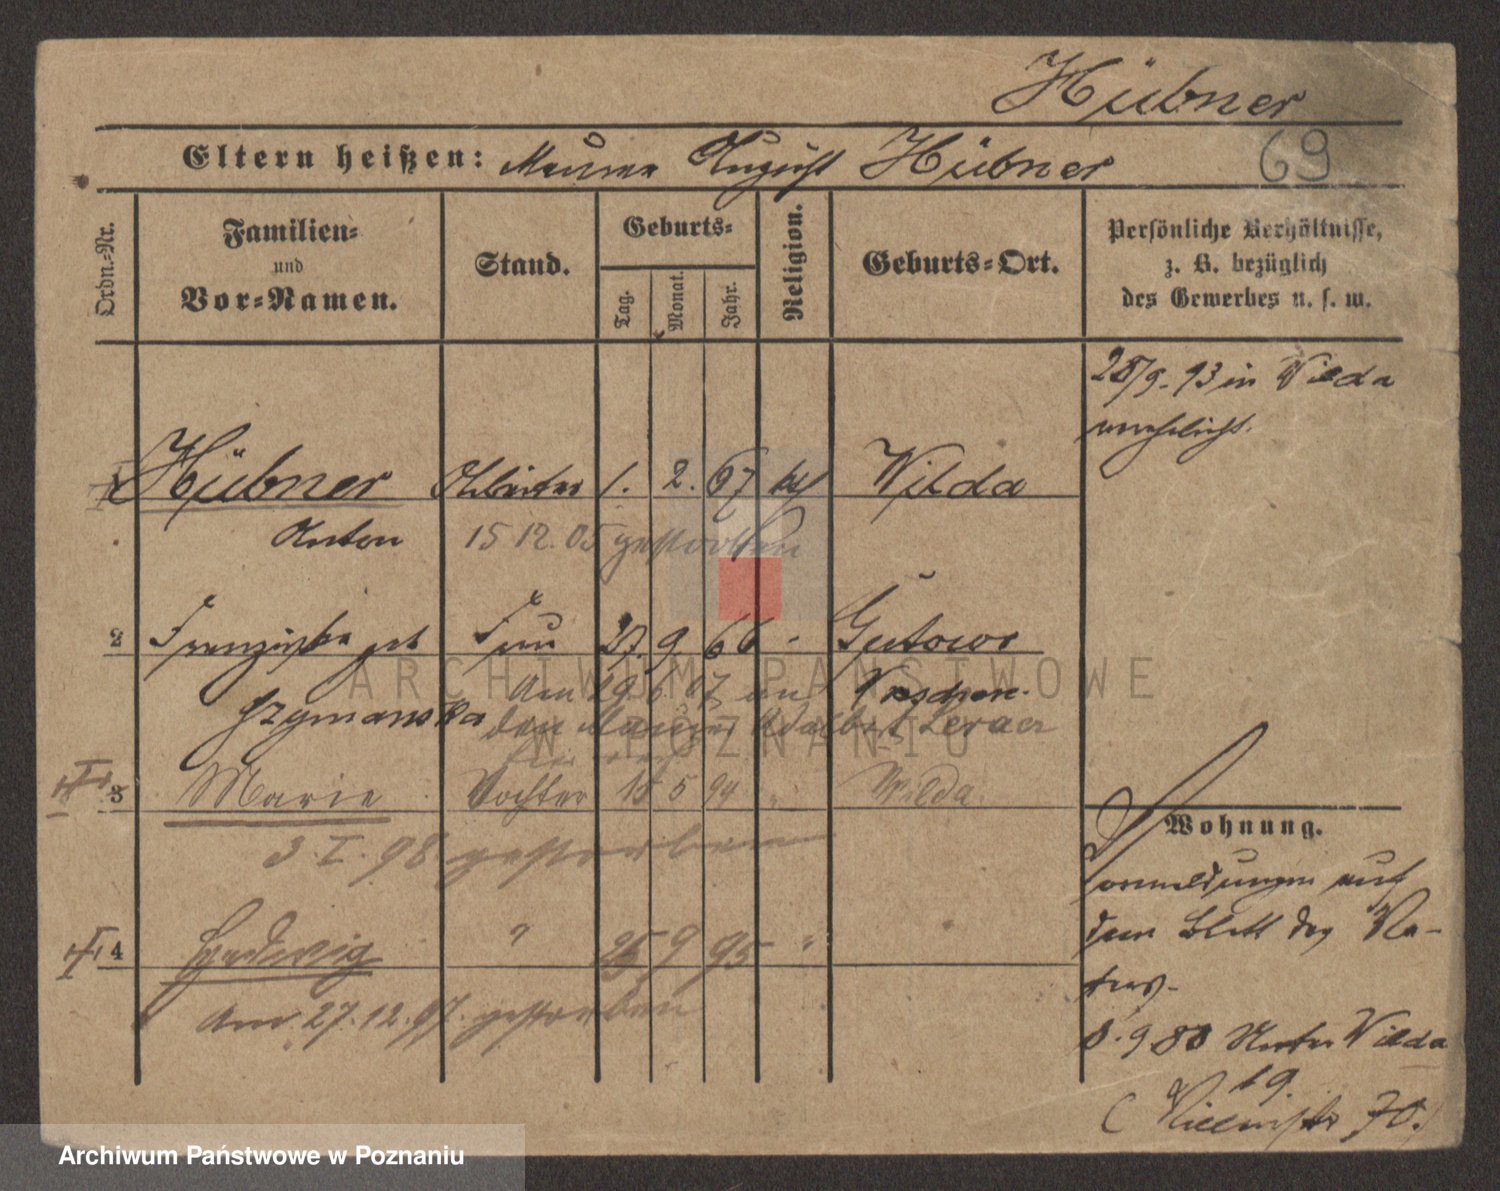 Hübner
69
Eltern heißen: Maurer August Hübner
Ordn.-Nr.
Familien-
und
Vor-Namen.
Stand.
Geburts-
Tag.
Monat.
Jahr.
Religion.
Geburts-Ort.
Persönliche Verhältnisse,
z. B. bezüglich
des Gewerbes u. s. w.
28/9. 93 in Wilda
verehelicht.
1 Hübner Arbeiter 1. 2. 67 kath Wilda
Anton 15 12. 05 gestorben
2 Franziska geb Frau 27. 9 66 - Gutowo
Szymanska Wreschen.
Am 29. 6 07 an
den Maurer Adalbert
3 Marie Tochter 15 5 94 " Wilda.
3. I. 98 gestorben
Wohnung.
Vormeldungen auf
dem Blatt des Va-
ters.
4 Hedwig " 25 9 95 "
Am 27. 12. 97. gestorben
8. 9 88 Unter Wilda
19.
70.)
ARCHIWUM PAŃSTWOWE
W POZNANIU
Archiwum Państwowe w Poznaniu